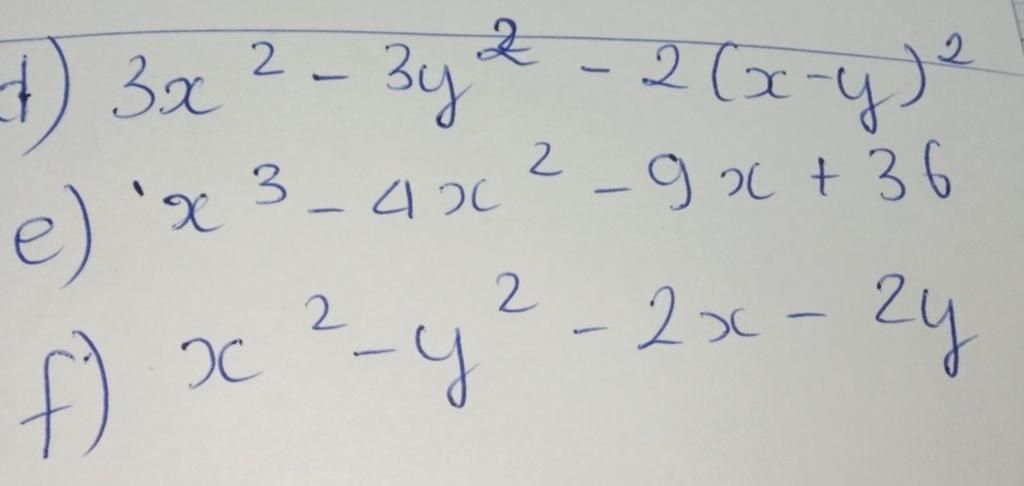 d) 3x² - 3y² - 2(x-y)²
e) x³ - 4x² - 9x + 36
f) x² - y² - 2x - 2y